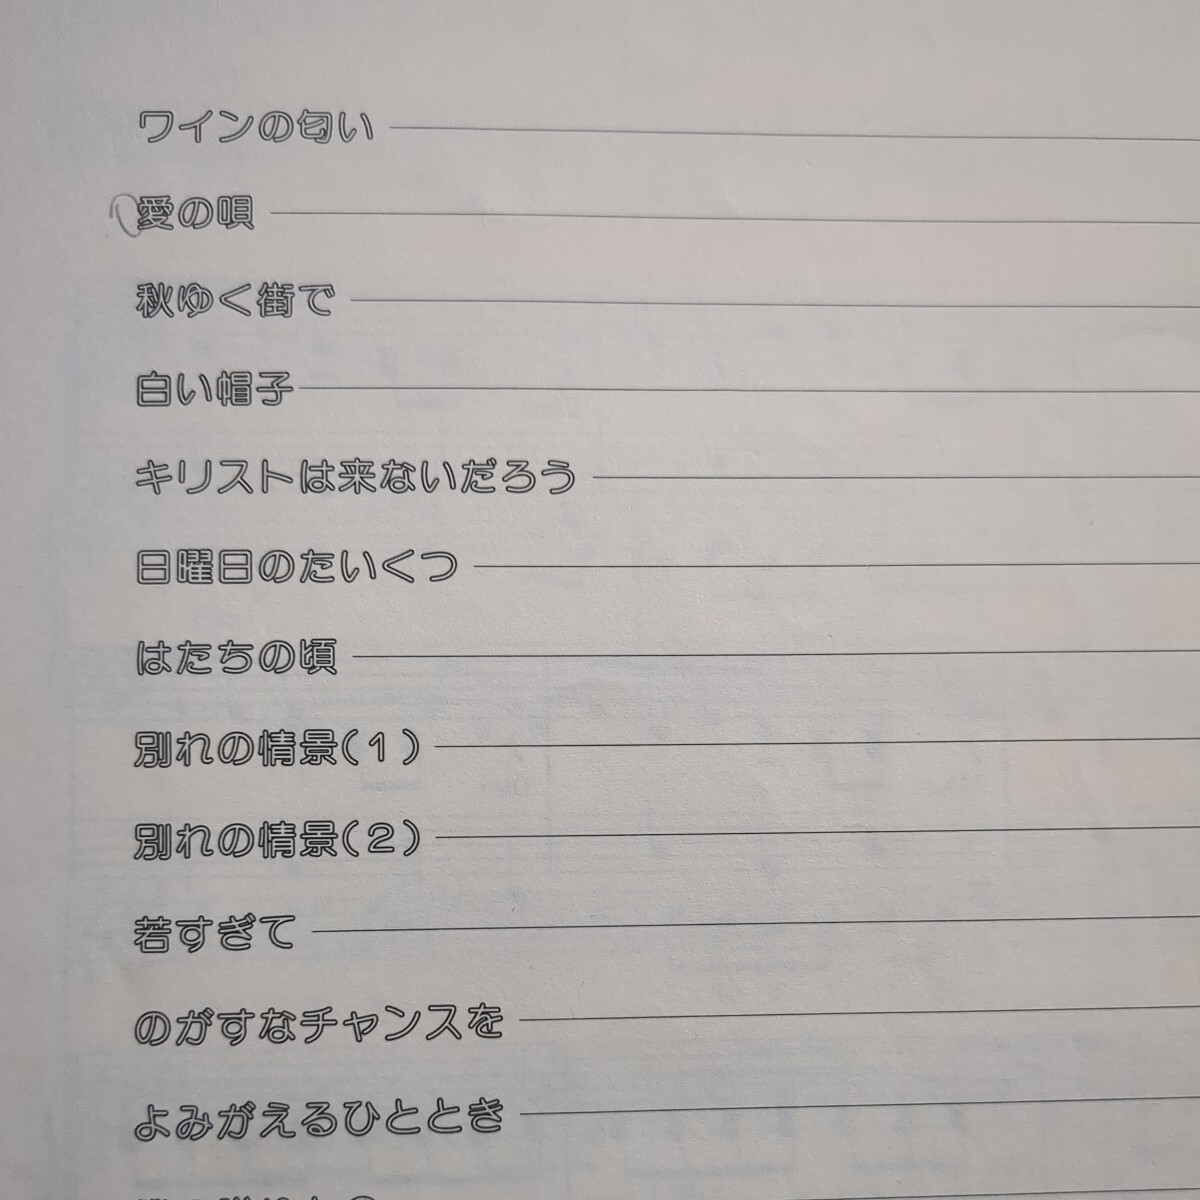 ワインの匂い
愛の唄
秋ゆく街で
白い帽子
キリストは来ないだろう
日曜日のたいくつ
はたちの頃
別れの情景(1)
別れの情景(2)
若すぎて
のがすなチャンスを
よみがえるひととき